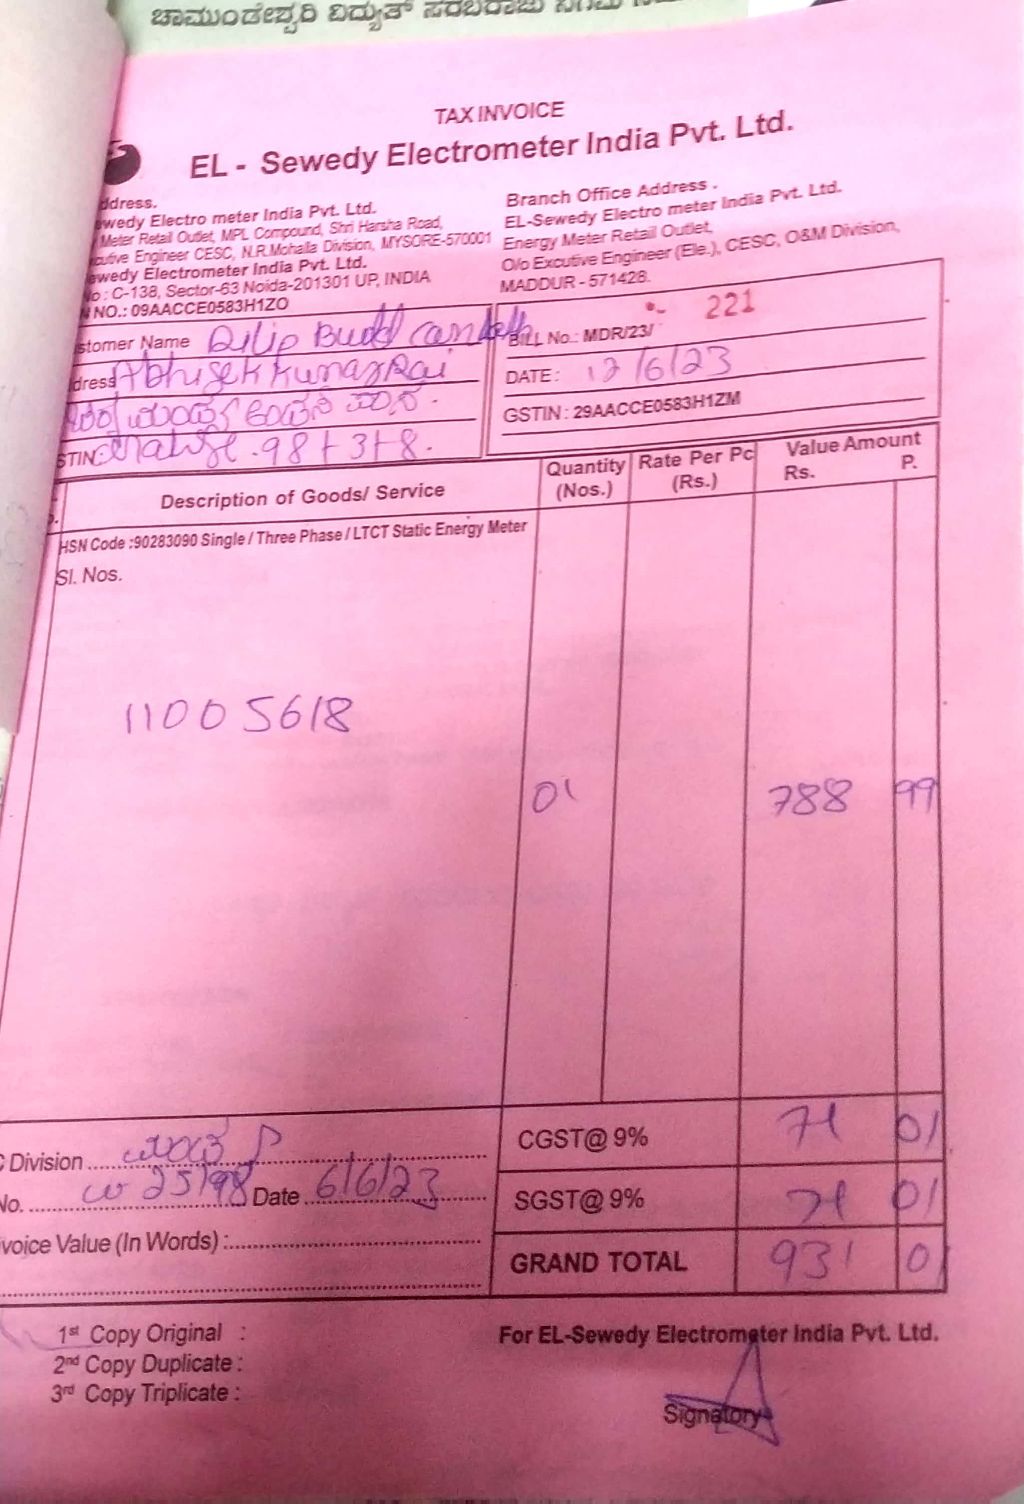 ಚಾಮುಂಡೇಶ್ವರಿ ವಿದ್ಯುತ್ ಸರಬರಾಜು ನಿಗಮ
TAX INVOICE
EL - Sewedy Electrometer India Pvt. Ltd.
ddress.
ewedy Electro meter India Pvt. Ltd.
Meter Retail Outlet, MPL Compound, Shri Harsha Road,
cutive Engineer CESC, N.R.Mohalla Division, MYSORE-570001
ewedy Electrometer India Pvt. Ltd.
No : C-138, Sector-63 Noida-201301 UP, INDIA
NO.: 09AACCE0583H1ZO
Branch Office Address .
EL-Sewedy Electro meter India Pvt. Ltd.
Energy Meter Retail Outlet,
O/o Excutive Engineer (Ele.), CESC, O&M Division,
MADDUR - 571428.
stomer Name Dilip Budd
dress Abhisek Kumar Rai
STIN
BILL No.: MDR/23/ 221
DATE : 12/6/23
GSTIN : 29AACCE0583H1ZM
Description of Goods/ Service
Quantity (Nos.)
Rate Per Pc (Rs.)
Value Amount
Rs. P.
HSN Code :90283090 Single / Three Phase / LTCT Static Energy Meter
Sl. Nos.
11005618
01 788 99
CGST@ 9% 71 01
C Division
No. 25198 Date 6/6/23
SGST@ 9% 71 01
voice Value (In Words) :
GRAND TOTAL 931 01
1st Copy Original :
2nd Copy Duplicate :
3rd Copy Triplicate :
For EL-Sewedy Electrometer India Pvt. Ltd.
Signatory